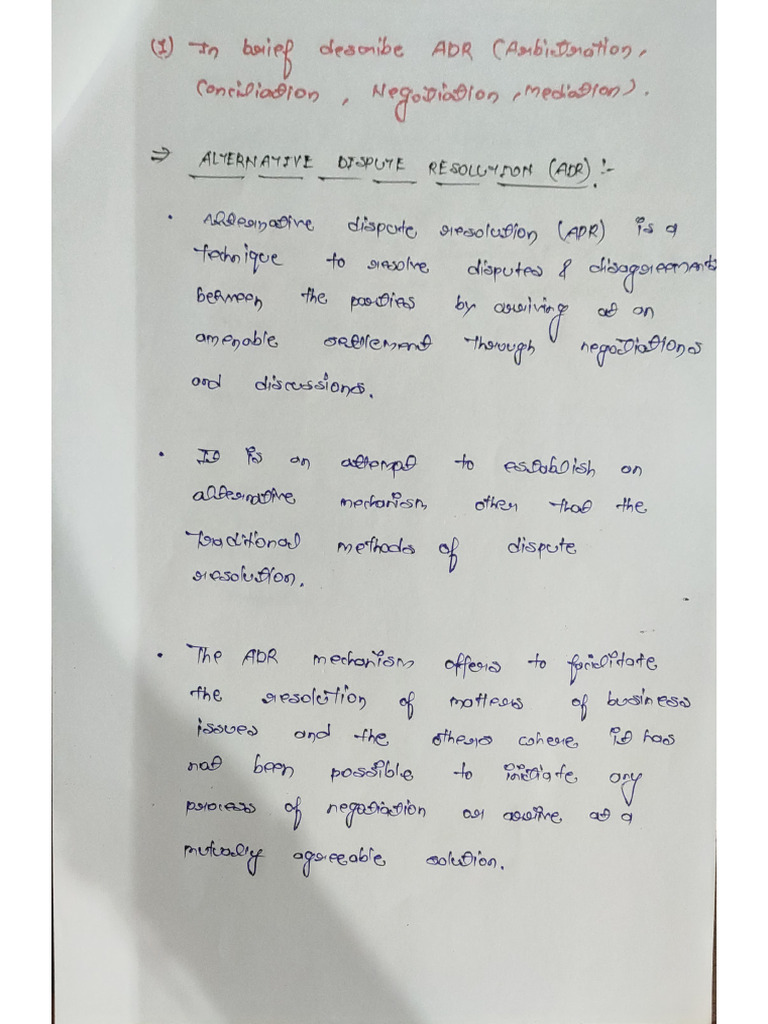 (1) In brief describe ADR (Arbitration,
Conciliation, Negotiation, Mediation).
⇒ ALTERNATIVE DISPUTE RESOLUTION (ADR) :-
• Alternative dispute resolution (ADR) is a
technique to resolve disputes & disagreements
between the parties by arriving at an
amenable settlement through negotiations
and discussions.
• It is an attempt to establish an
alternative mechanism other that the
traditional methods of dispute
resolution.
• The ADR mechanism offers to facilitate
the resolution of matters of business
issues and the others where it has
not been possible to initiate any
process of negotiation or arrive at a
mutually agreeable solution.